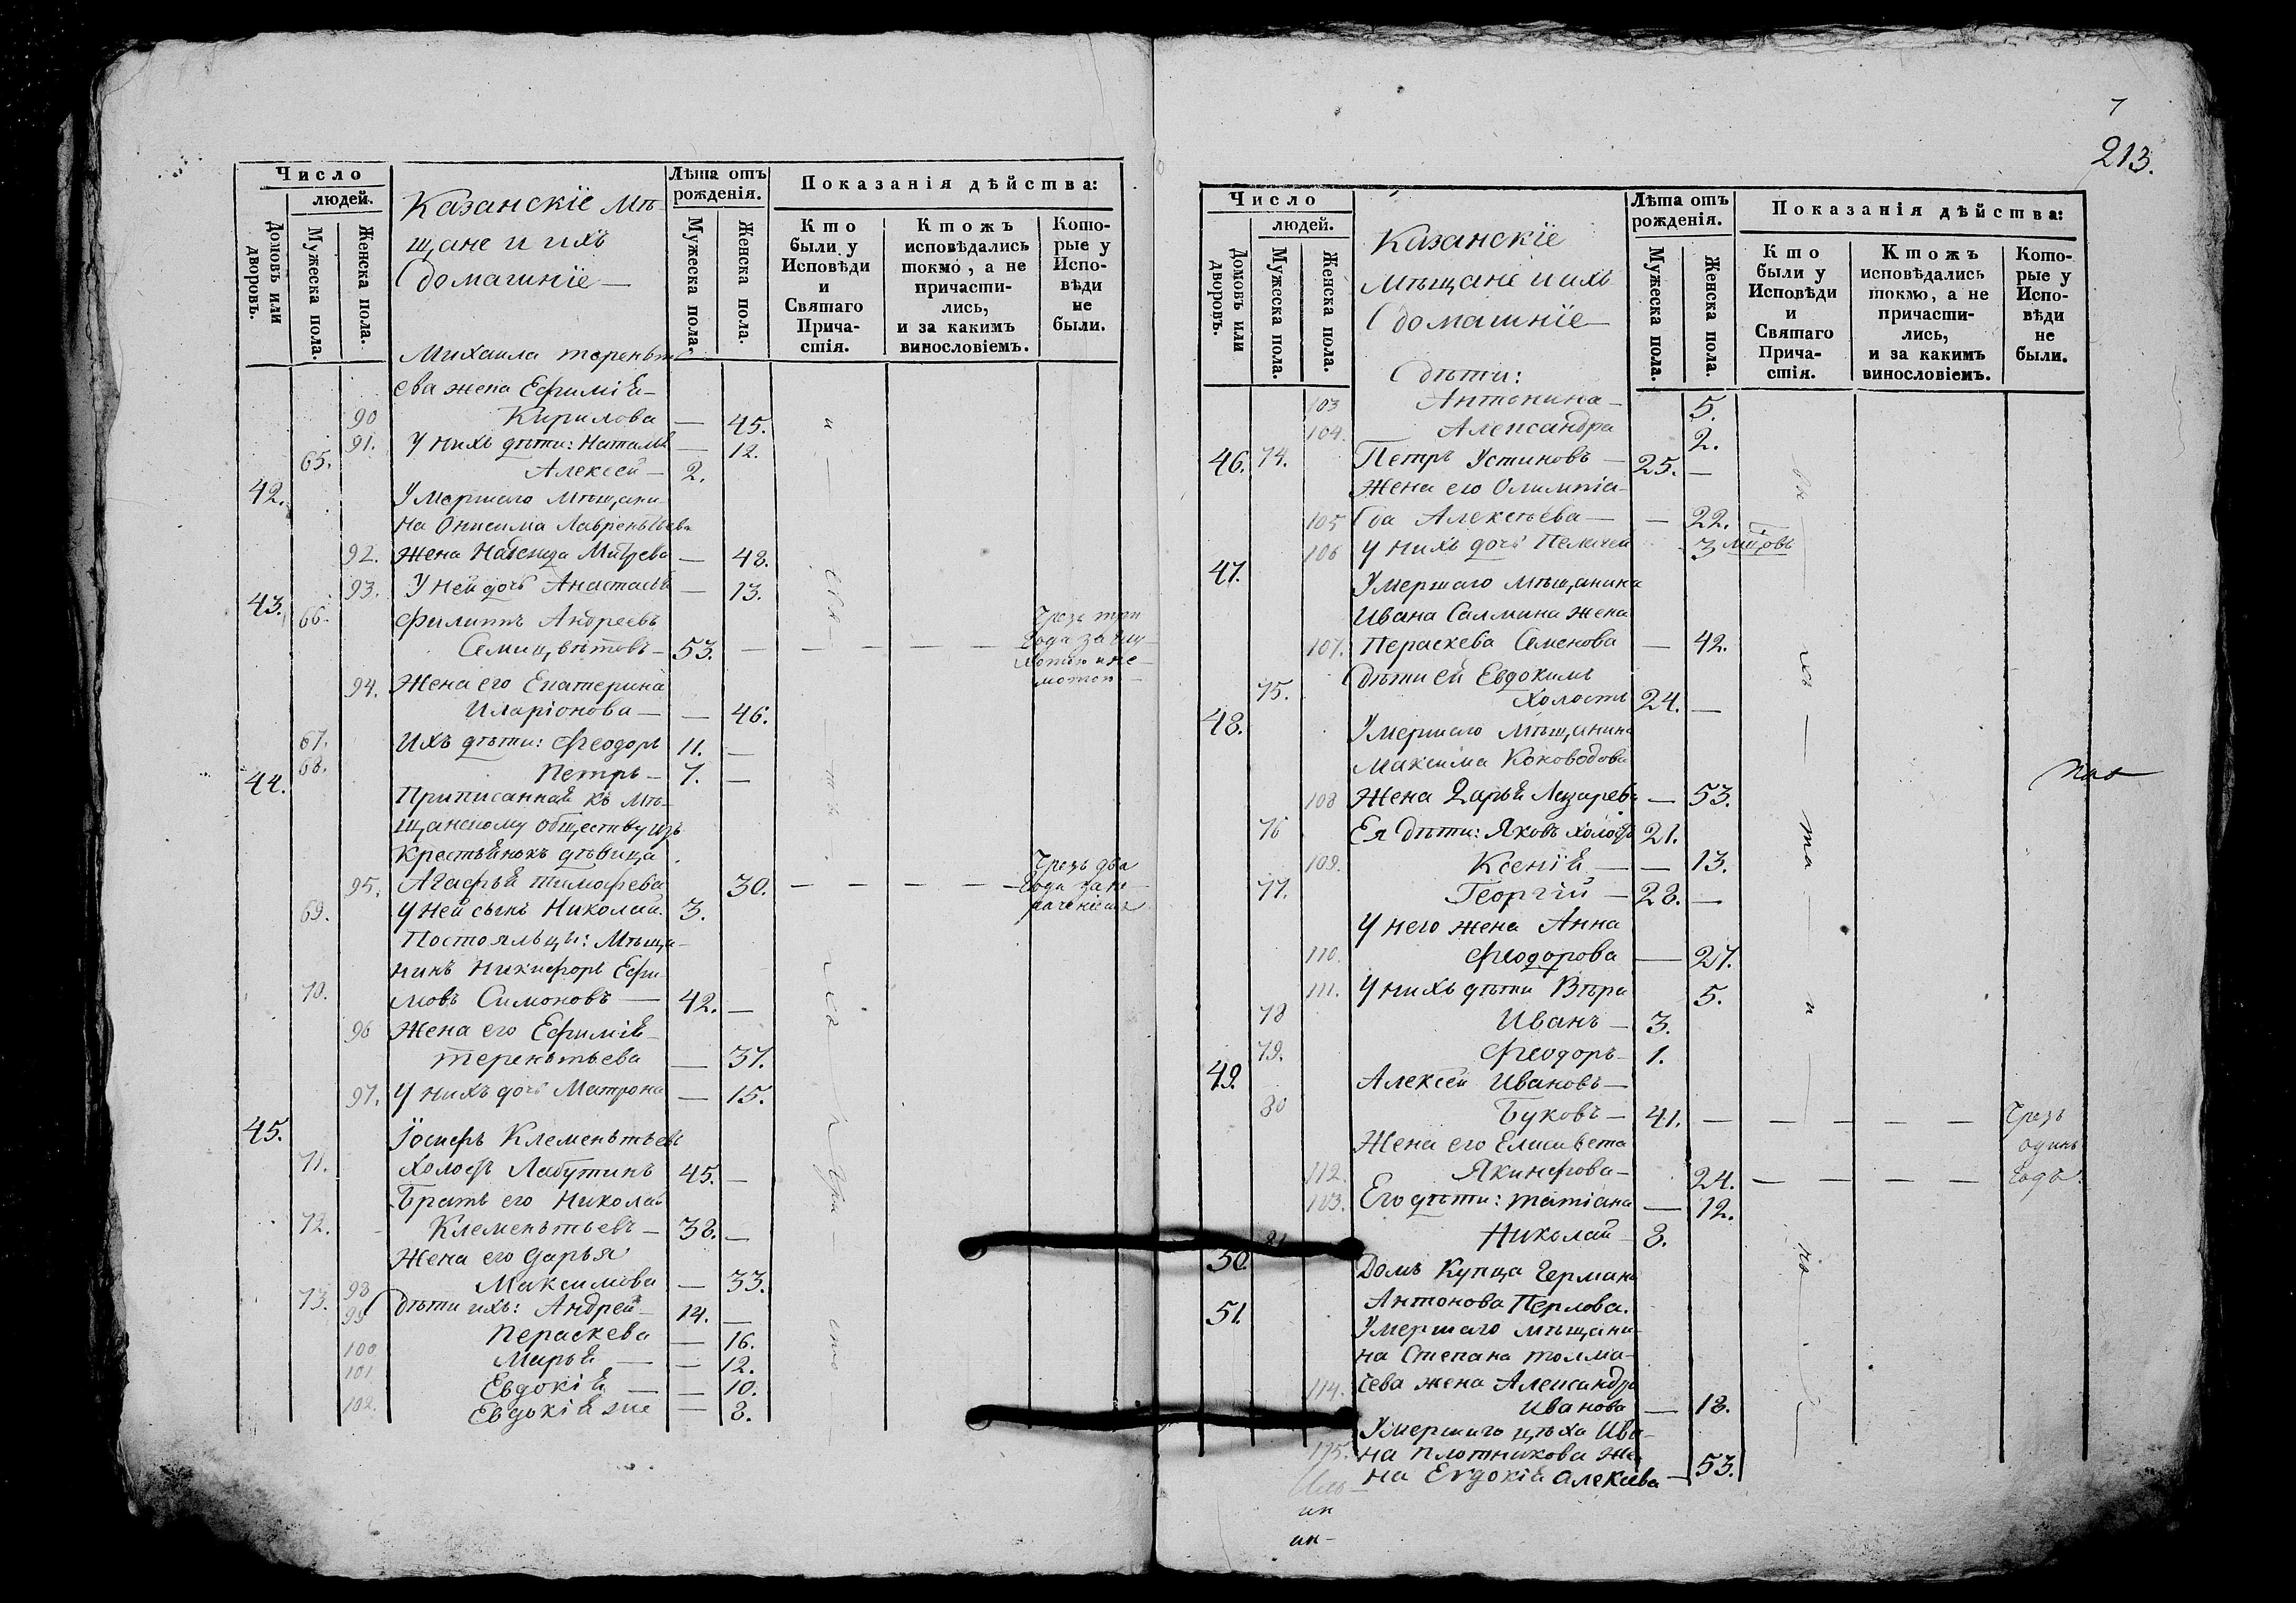 Число
людей.
Домовъ или дворовъ.
Мужеска пола.
Женска пола.
Казанскіе мѣ-
щане и ихъ
домашніе —
Лѣта отъ
рожденія.
Мужеска пола.
Женска пола.
Показанія дѣйства:
Кто
были у
Исповѣди
и
Святаго
Прича-
стія.
Ктожъ
исповѣдались
токмо, а не
причасти-
лись,
и за какимъ
винословіемъ.
Кото-
рые у
Испо-
вѣди
не
были.
Михаила терентъ
ева жена Ефимія —
90 Кирилова — 45.
91. У нихъ дѣти: Наталья — 12.
65. Алексей — 2.
42. Умершаго мѣщани-
на Онисима Лаврентьева
92. жена Надежда — 48.
93. У ней дочь Анастасія — 13.
43. 66. Филиппъ Андреевъ
Семицвѣтовъ — 53. —
Чрезъ три
года за
94. Жена его Екатерина
Иларіонова — — 46.
67. Ихъ дѣти: Феодоръ 11. —
68. Петръ — 7. —
44. Приписанная къ мѣ-
щанскому обществу изъ
крестьянокъ дѣвица
95. Агафья Тимофева 30.
Чрезъ два
года за не-
раченіемъ
69. У ней сынъ Николай. 3.
Постояльцы: Мѣща-
нинъ Никифоръ Ефи-
70. мовъ Симоновъ — 42. —
96 Жена его Ефимія
терентьева — 37.
97. У нихъ дочь Матрона — 15.
45. Іосифъ Клементьевъ
71. холостъ Лабутинъ 45. —
Братъ его Николай
72. Клементьевъ — 38. —
Жена его Дарья
98 Максимова — 33.
73. 99 дѣти ихъ: Андрей — 14. —
Параскева — 16.
100 Марья — — 12.
101 Евдокія — — 10.
102. Евдокія же — 8.
7
213.
Число
людей.
Домовъ или дворовъ.
Мужеска пола.
Женска пола.
Казанскіе
мѣщане и ихъ
домашніе —
Лѣта отъ
рожденія.
Мужеска пола.
Женска пола.
Показанія дѣйства:
Кто
были у
Исповѣди
и
Святаго
Прича-
стія.
Ктожъ
исповѣдались
токмо, а не
причасти-
лись,
и за какимъ
винословіемъ.
Кото-
рые у
Испо-
вѣди
не
были.
дѣти:
103 Антонина — 5.
104. Александра 2.
46. 74. Петръ Устиновъ — 25. —
Жена его Олимпіа-
105 да Алексѣева — — 22.
106 У нихъ дочь Пелагея 3
47. Умершаго мѣщанина
Ивана Салмина жена
107. Пераскева Семенова — 42.
дѣти ей Евдокимъ
75. Холостъ 24. —
48. Умершаго Мѣщанина
Максима Коноводова
108 Жена Дарья Лазарева — 53.
76 Ея дѣти: Яковъ холостъ 21.
109. Ксенія — — 13.
77. Георгій — 28. —
У него жена Анна
110. Феодорова — 27.
111. У нихъ дѣти Вѣра 5.
78 Иванъ — 3.
79. Феодоръ — 1.
49. Алексей Ивановъ —
80 Буковъ — 41. —
Чрезъ
одинъ
года.
Жена его Елисавета
112. Якинфова — 24.
113. Его дѣти: татіана — 12.
Николай — 8.
50 Домъ Купца Германа
Антонова Перлова.
51. Умершаго мѣщани-
на Степана толма-
114. чева жена Александра
Иванова — 18.
Умершаго цѣха Ива-
115. на Плотникова же-
на Евдокія Алексева — 53.